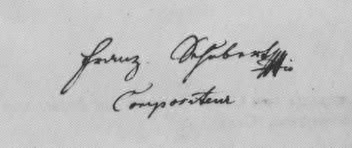 Franz Schubert
Compositeur